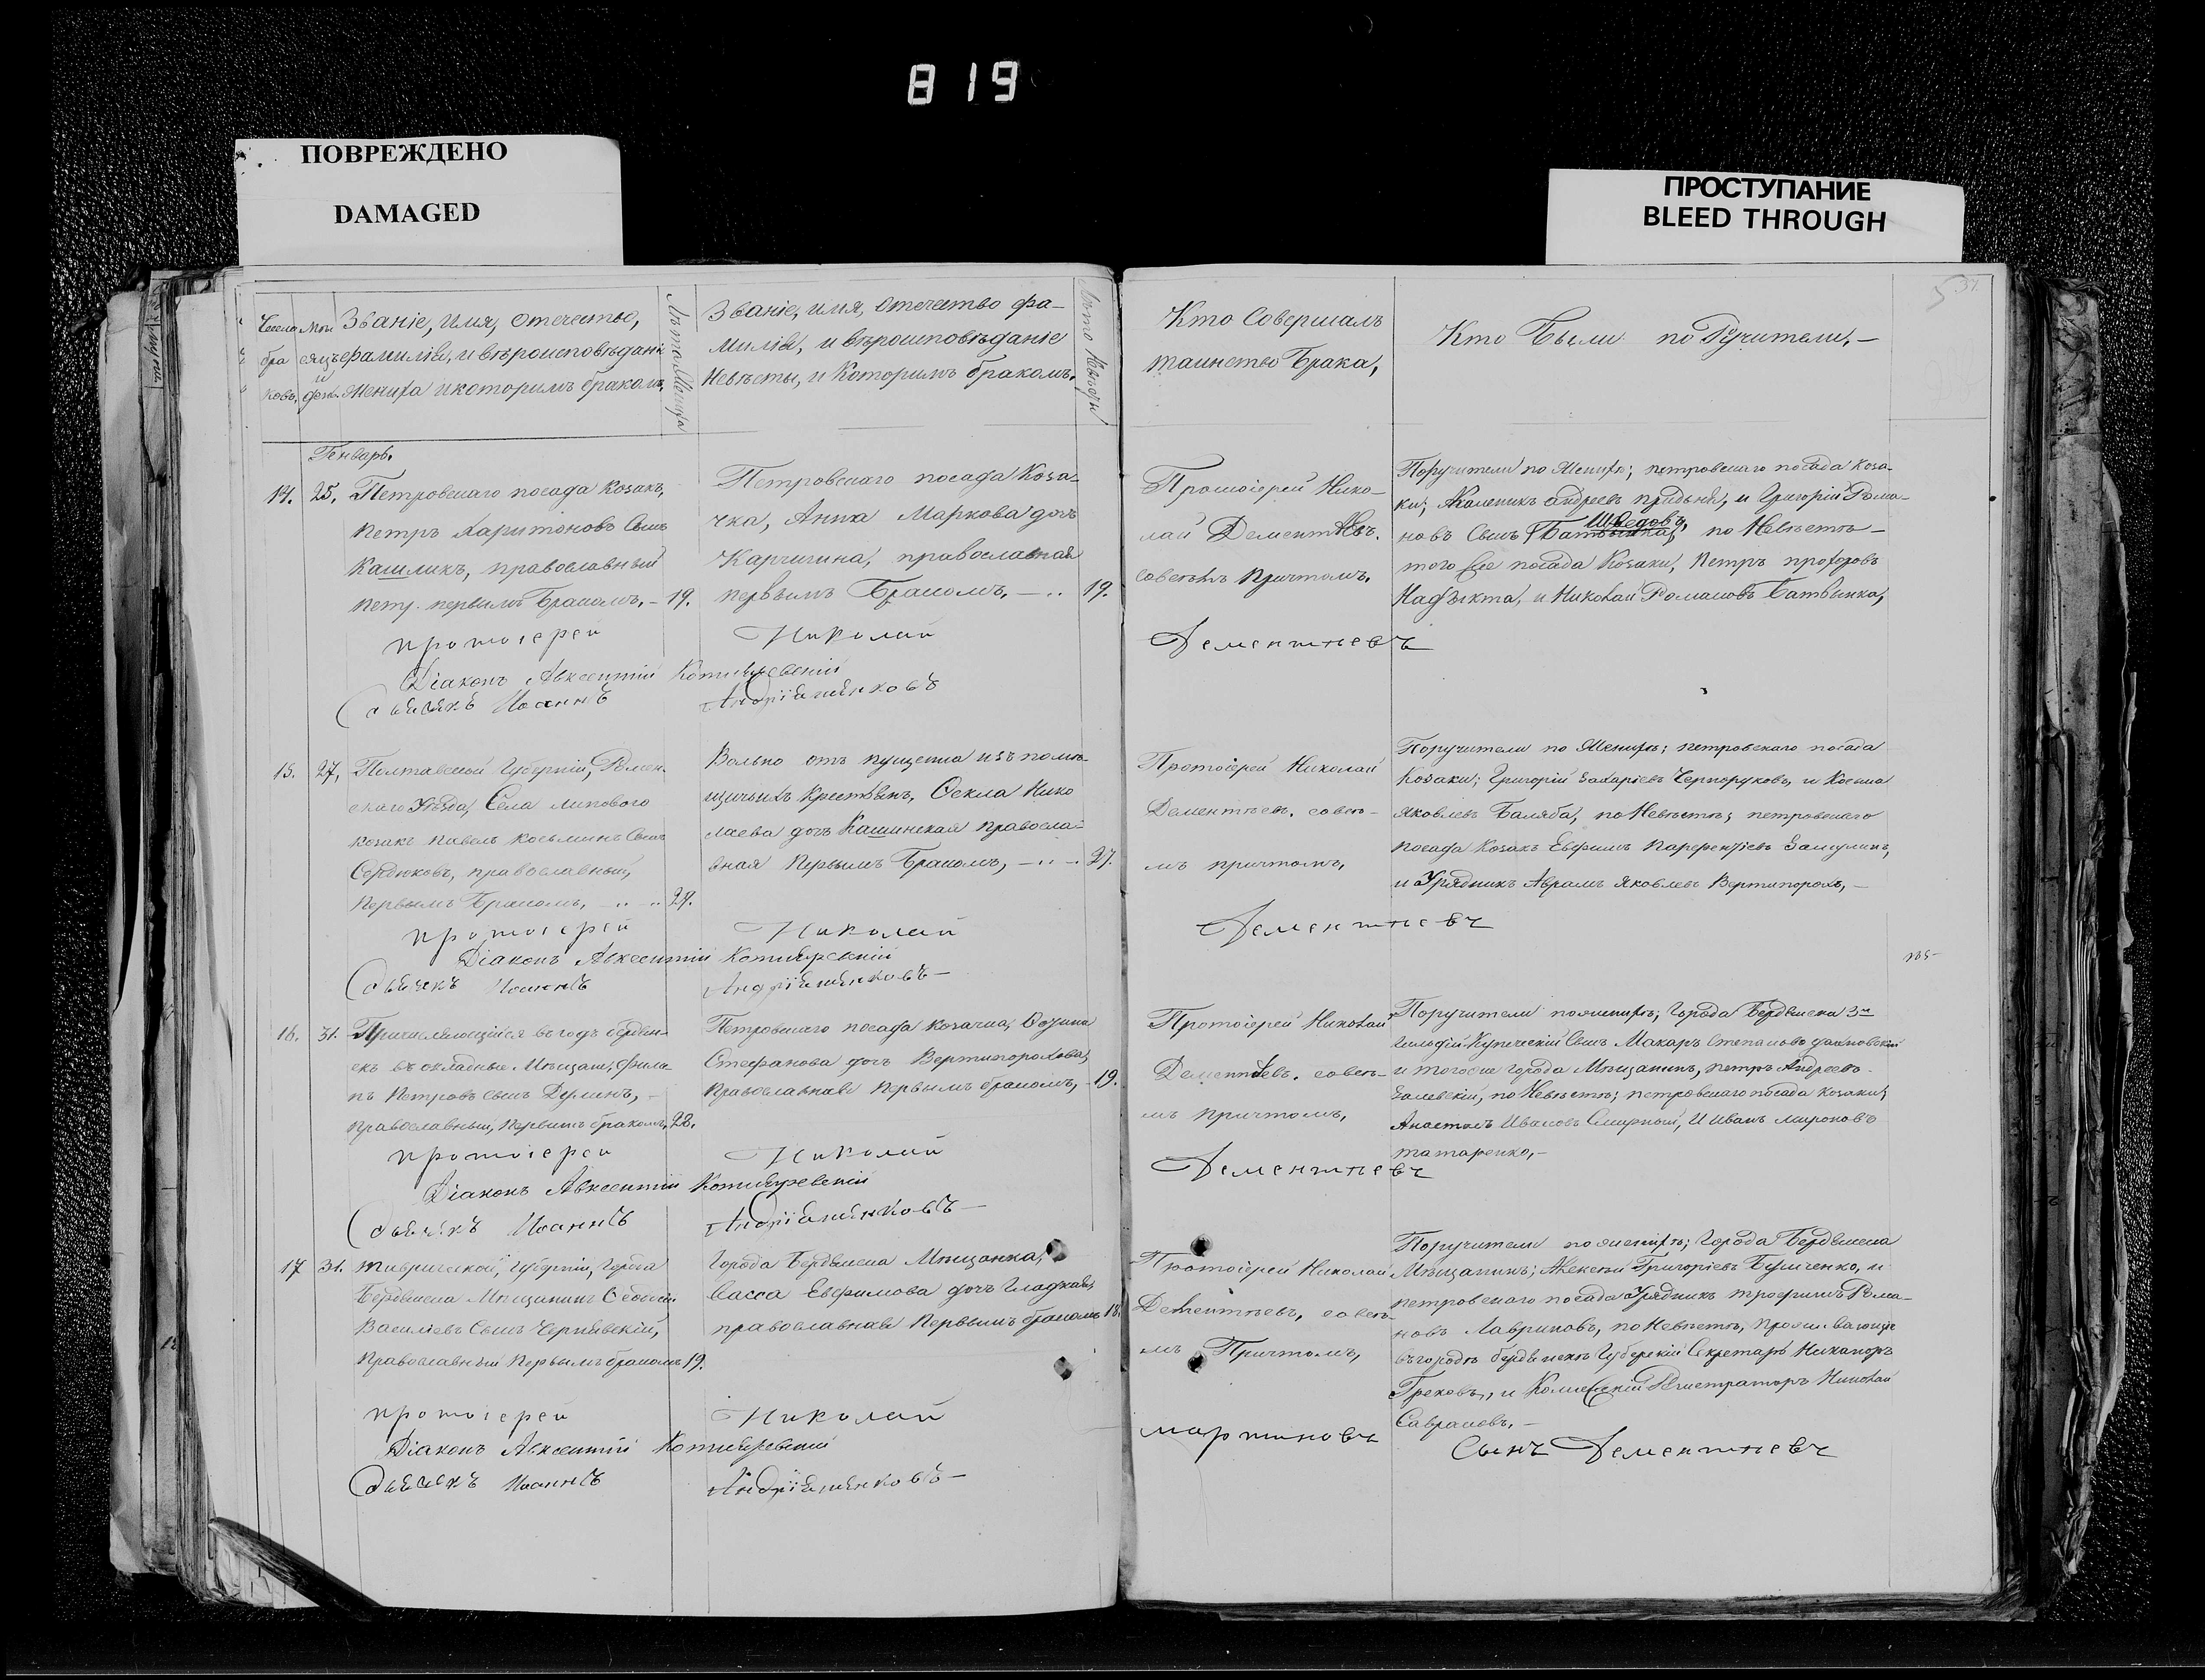 819
ПОВРЕЖДЕНО
DAMAGED
ПРОСТУПАНИЕ
BLEED THROUGH
Число бра ковъ.
Мѣсяцъ и день.
Званіе, имя, отечество,
фамилія, и вѣроисповѣданіе
Жениха и которимъ бракомъ,
Лѣта Жениха
Званіе, имя, отечество фа-
милія, и вѣроисповѣданіе
Невѣсты, и Которимъ бракомъ.
Лѣто Невѣсты
Кто Совершалъ
таинство Брака,
Кто Были по Ручители,-
Генварь.
14. 25. Петровскаго посада Козакъ,
Петръ Харитоновъ Сынъ
Кашликъ, православный
первымъ Бракомъ, - 19.
Петровскаго посада Коза-
чка, Анна Маркова дочь
Карчигина, православная
первымъ Бракомъ, - 19.
Протоіерей Нико-
лай Дементьевъ.
совсѣмъ Причтомъ,
Поручители по Женихѣ; петровскаго посада Коза-
ки; Андреевъ и Григорій Рома-
Шведовъ,
новъ Сынъ Батвинка, по Невѣстѣ -
того же посада Козаки, Петръ прохоровъ
и Николай Романовъ Батвинка,
протоіерей Николай Дементьевъ
Діаконъ Авксентій
Дьячекъ Иоаннъ Андріяшенковъ
15. 27, Полтавской Губерніи, Ромен-
скаго Уѣзда, Села липового
козакъ павелъ козьминъ Сынъ
Сердюковъ, православный,
Первымъ Бракомъ, - 27.
Вольно отъ пущенна изъ помѣ-
щичьихъ Крестьянъ, Ѳекла Нико
лаева дочь Кашинская правосла-
вная Первымъ Бракомъ, - 27.
Протоіерей Николай
Дементьевъ. совсѣ-
мъ причтомъ,
Поручители по Женихѣ; петровскаго посада
Козаки; Григорій Захаріевъ Черноруковъ, и Косма
Яковлевъ Баляба, по Невѣстѣ; петровскаго
посада Козакъ Евфимъ
и Урядникъ Аврамъ Яковлевъ Вертипорохъ, -
протоіерей Николай Дементьевъ
Діаконъ Авксентій
Дьячекъ Иоаннъ Андріяшенковъ -
16. 31. Причисляющійся въ годъ бердян-
скъ въ окладные Мѣщане, фили-
пъ Петровъ сынъ Думинъ, -
православный, Первымъ бракомъ, 22.
Петровскаго посада козачка,
Стефанова дочь Вертипорохова,
Православная Первымъ бракомъ, - 19.
Протоіерей Николай
Дементьевъ. совсѣ-
мъ причтомъ,
Поручители по женихѣ; города Бердянска 3й
гильдіи Купеческій Сынъ Макаръ Степановъ
и того же города Мѣщанинъ, петръ Андреевъ
Залевскій, по Невѣстѣ; петровскаго посада козаки;
Ивановъ Смирной, И Иванъ мироновъ
татаренко, -
протоіерей Николай Дементьевъ
Діаконъ Авксентій
Дьячекъ Иоаннъ Андріяшенковъ -
17 31. таврической, Губерніи, города
Бердянска Мѣщанинъ
Василіевъ Сынъ Чернявскій,
Православный Первымъ бракомъ 19.
города Бердянска Мѣщанка,
Васса Евфимова дочь Гладкая,
православная Первымъ бракомъ 18.
Протоіерей Николай
Дементьевъ, совсѣ-
мъ Причтомъ,
Поручители по женихѣ; города Бердянска
Мѣщанинъ; Алексѣй Григоріевъ и
петровскаго посада Урядникъ трофимъ Рома-
новъ Лавриковъ, по Невѣстѣ, проживающіе
въ городѣ бердянскѣ Губерскій Секретарь Никаноръ
Грековъ, и Колежскій Регистраторъ Николай
Савраповъ. -
протоіерей Николай мартиновъ Сынъ Дементьевъ
Діаконъ Авксентій
Дьячекъ Иоаннъ Андріяшенковъ -